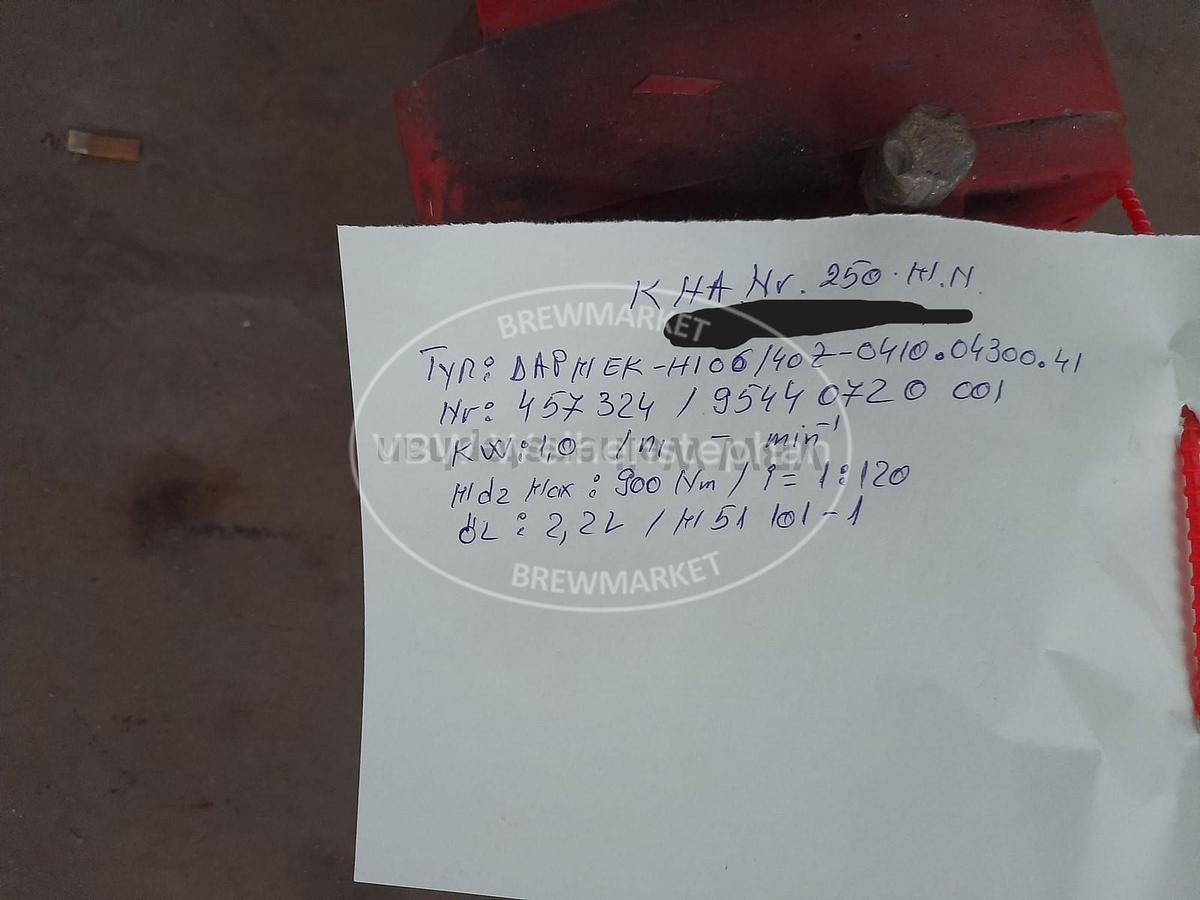 K HA Nr. 250 · M.N.
BREWMARKET
Typ: DAPMEK-M106/40Z-0410.04300.41
Nr: 457324 / 95440720 001
KW: 1,0 / n1 - min-1
Md2 Max: 900 Nm / i = 1:120
ÖL: 2,2L / M51 101-1
BREWMARKET